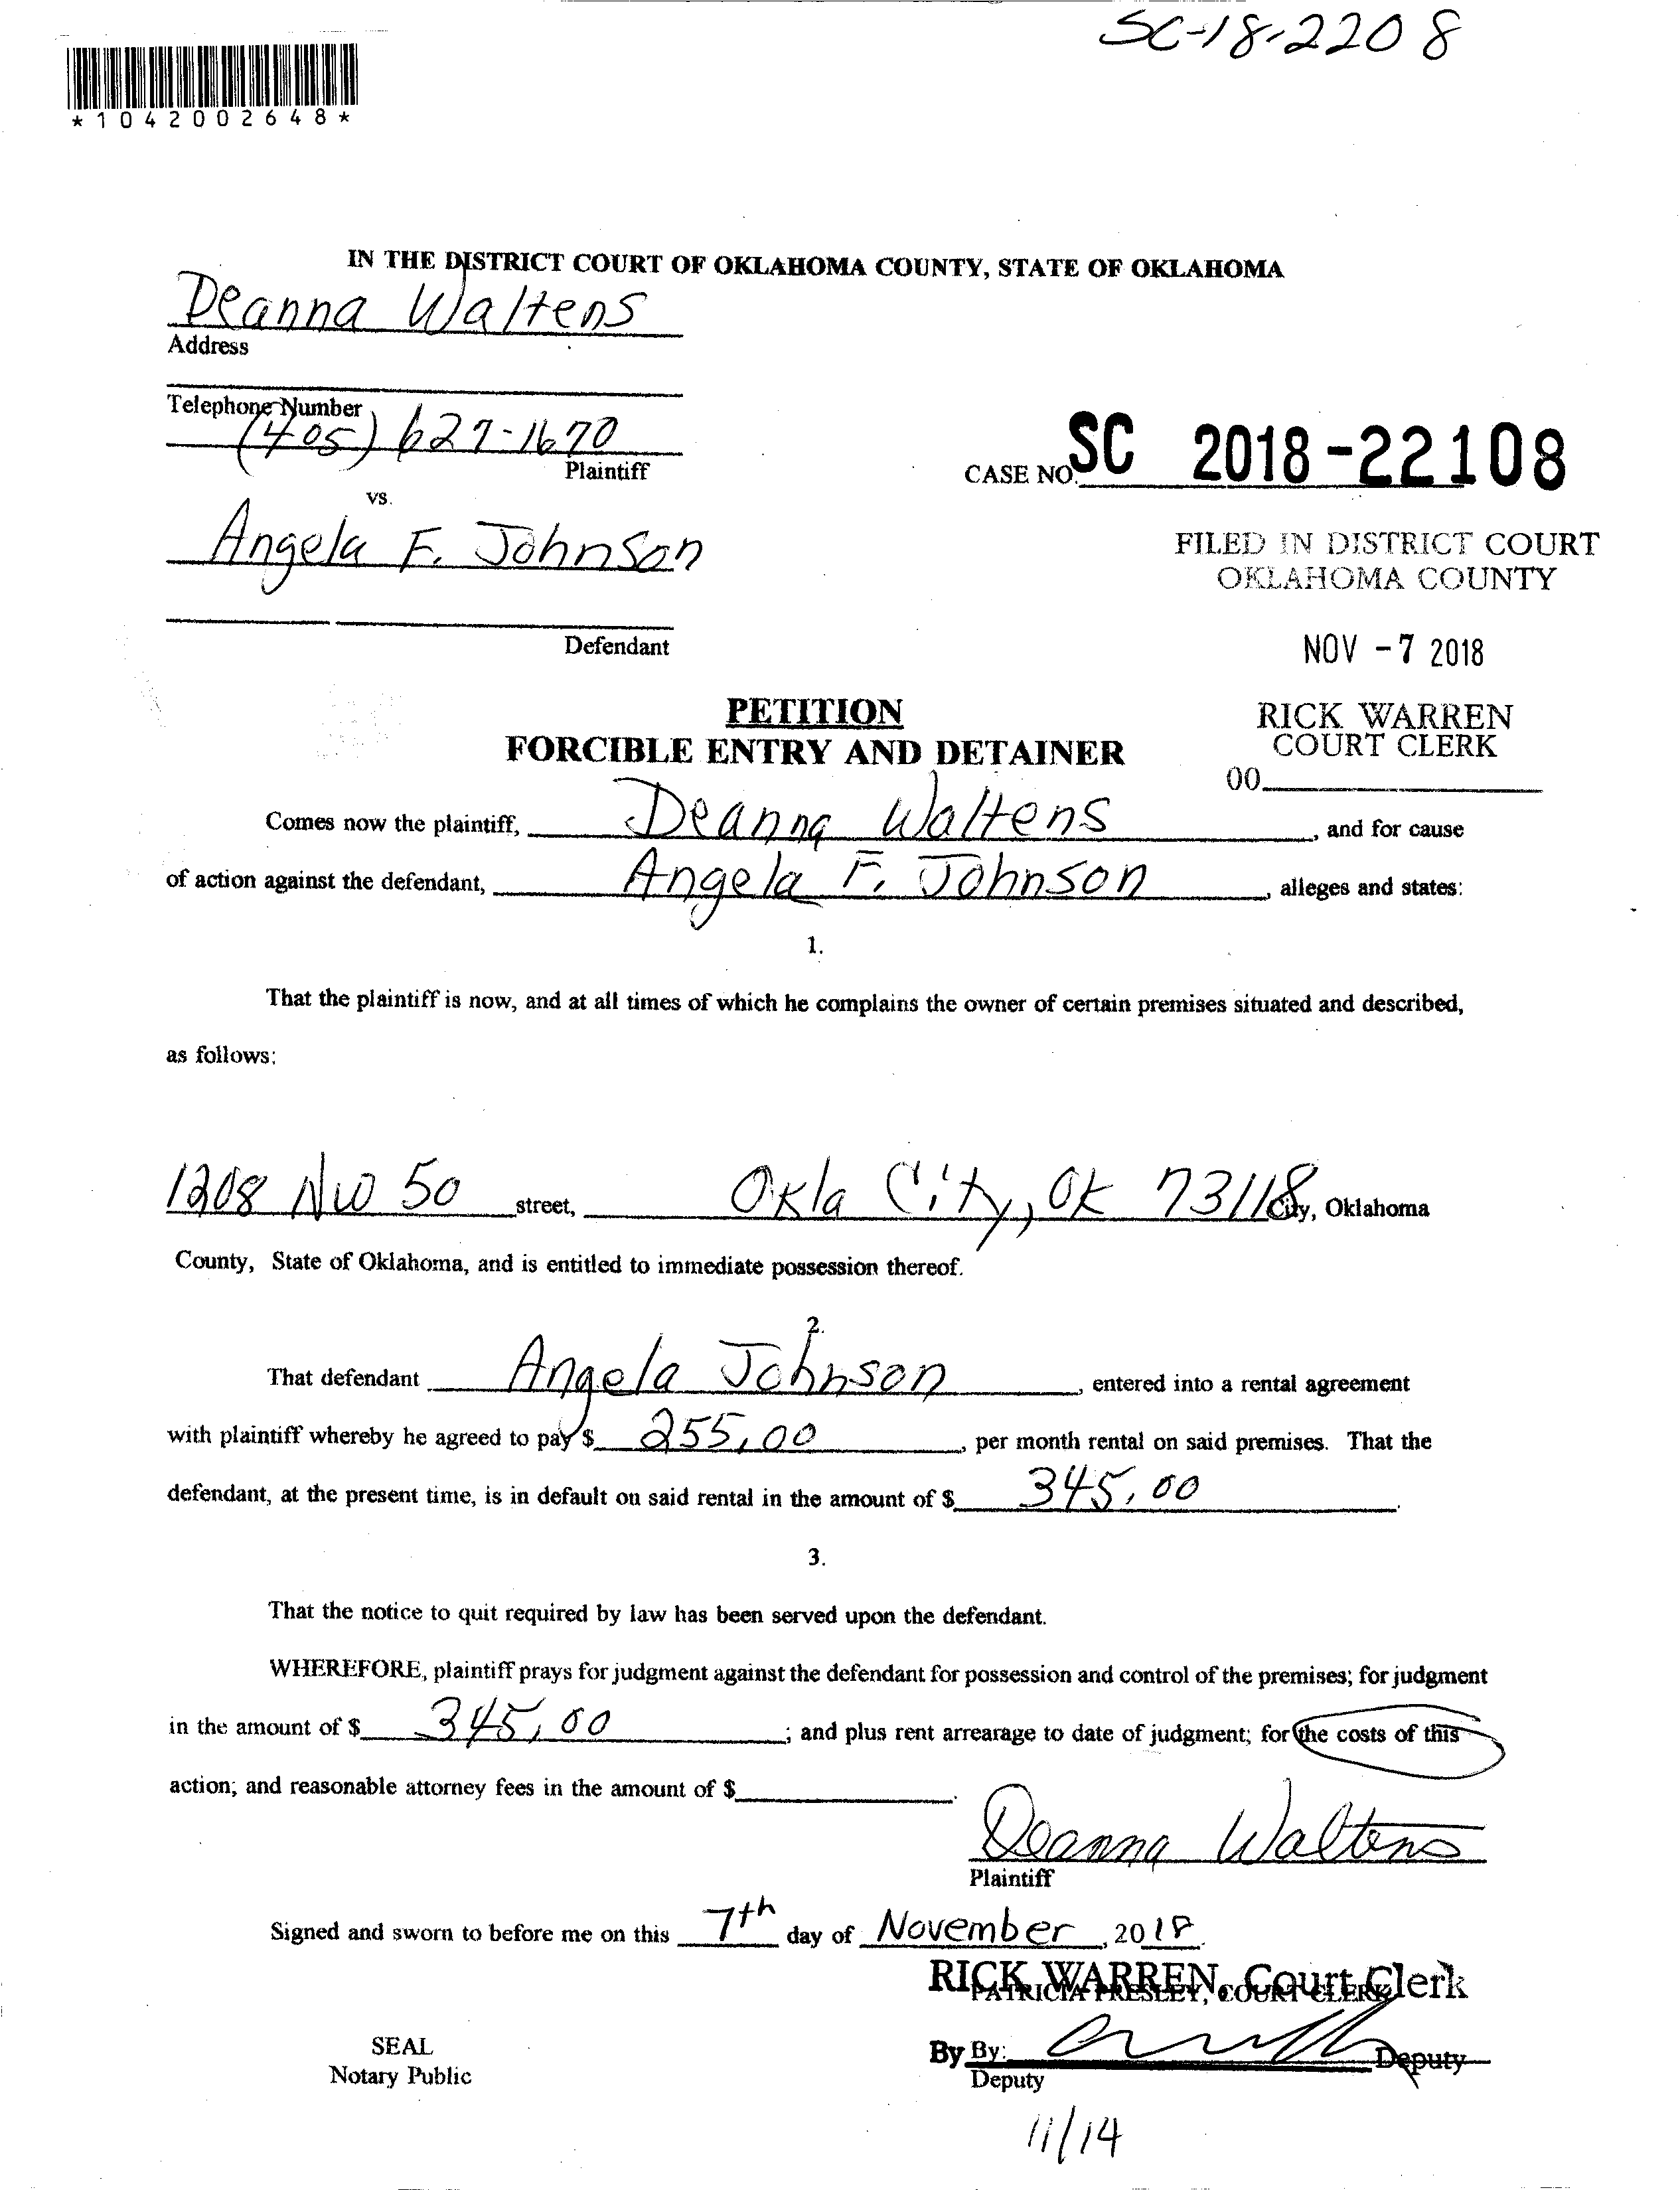 SC-18-2208
*1042002648*
IN THE DISTRICT COURT OF OKLAHOMA COUNTY, STATE OF OKLAHOMA
Deanna Waltens
Address
Telephone Number
(405) 627-1670
Plaintiff
CASE NO. SC 2018-22108
vs.
Angela F. Johnson
FILED IN DISTRICT COURT
OKLAHOMA COUNTY
Defendant
NOV -7 2018
PETITION
FORCIBLE ENTRY AND DETAINER
RICK WARREN
COURT CLERK
00
Comes now the plaintiff, Deanna Waltens, and for cause
of action against the defendant, Angela F. Johnson, alleges and states:
1.
That the plaintiff is now, and at all times of which he complains the owner of certain premises situated and described,
as follows:
1208 NW 50 street, Okla City, OK 73118 City, Oklahoma
County, State of Oklahoma, and is entitled to immediate possession thereof.
2.
That defendant Angela Johnson, entered into a rental agreement
with plaintiff whereby he agreed to pay $ 255.00, per month rental on said premises. That the
defendant, at the present time, is in default on said rental in the amount of $ 345.00.
3.
That the notice to quit required by law has been served upon the defendant.
WHEREFORE, plaintiff prays for judgment against the defendant for possession and control of the premises; for judgment
in the amount of $ 345.00; and plus rent arrearage to date of judgment; for the costs of this
action; and reasonable attorney fees in the amount of $.
Deanna Waltens
Plaintiff
Signed and sworn to before me on this 7th day of November, 2018.
RICK WARREN, Court Clerk
PATRICIA PRESLEY, COURT CLERK
SEAL
Notary Public
By By: Deputy
Deputy
11/14